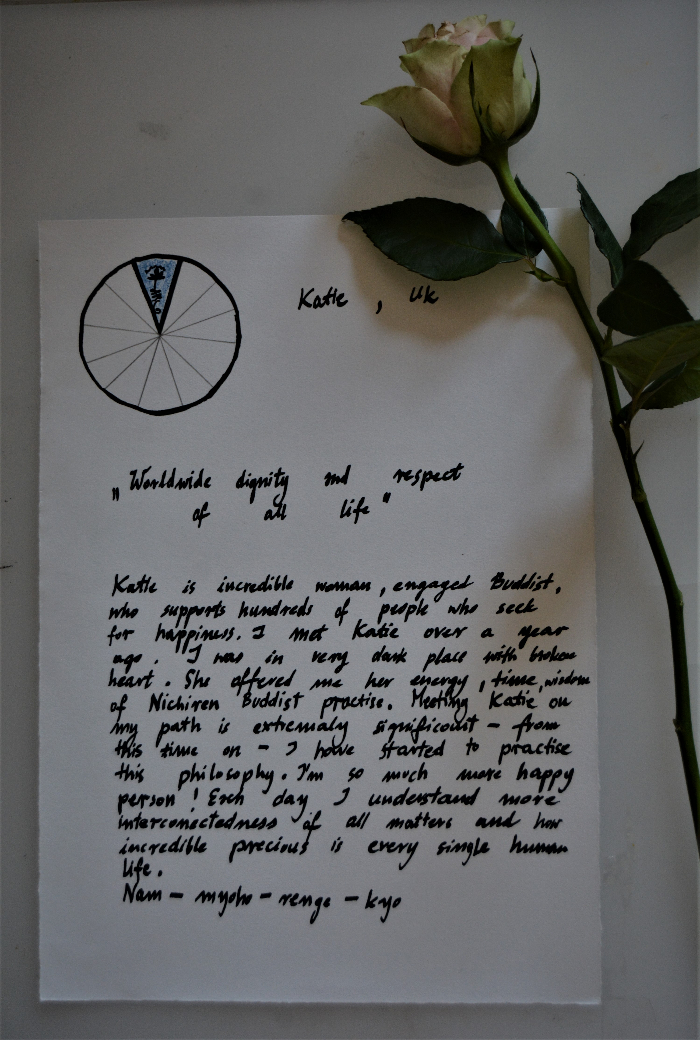 Katie , Uk
„Worldwide dignity and respect
of all life"
Katie is incredible woman, engaged Buddist,
who supports hundreds of people who seek
for happiness. I met Katie over a year
ago. I was in very dark place with broken
heart. She offered me her energy, time, wisdom
of Nichiren Buddist practise. Meeting Katie on
my path is extremaly significount - from
this time on - I have started to practise
this philosophy. I'm so much more happy
person! Each day I understand more
interconectedness of all matters and how
incredible precious is every single human
life.
Nam - myoho - renge - kyo